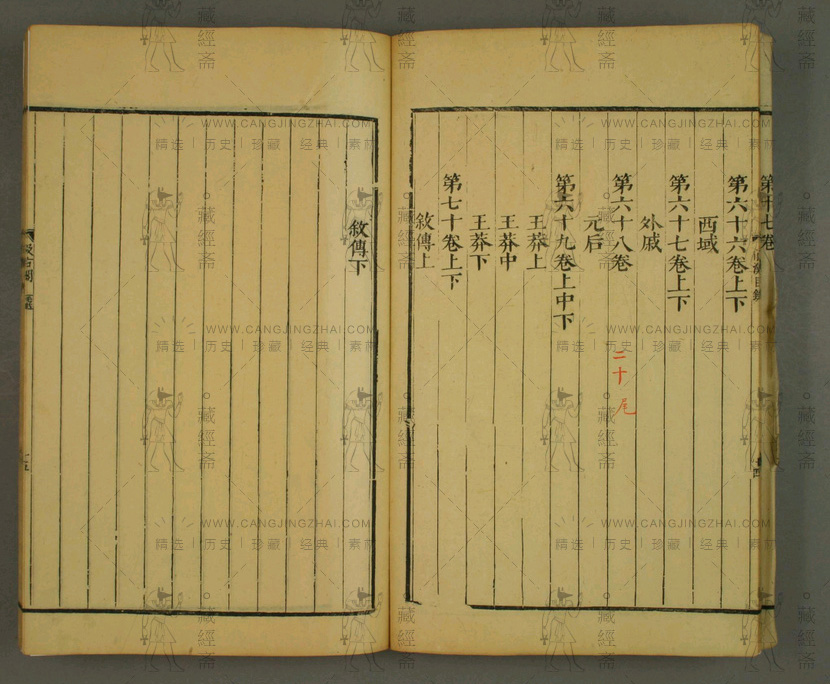 第六十六卷上下
西域
第六十七卷上下
外戚
第六十八卷
元后
第六十九卷上中下
王莽上
王莽中
王莽下
第七十卷上下
敘傳上
二十尾
敘傳下
藏經斋
WWW.CANGJINGZHAI.COM
精选|历史|珍藏|经典|素材